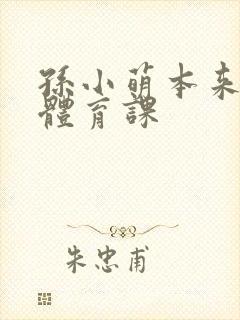 孫小萌本来
體育課
朱忠甫